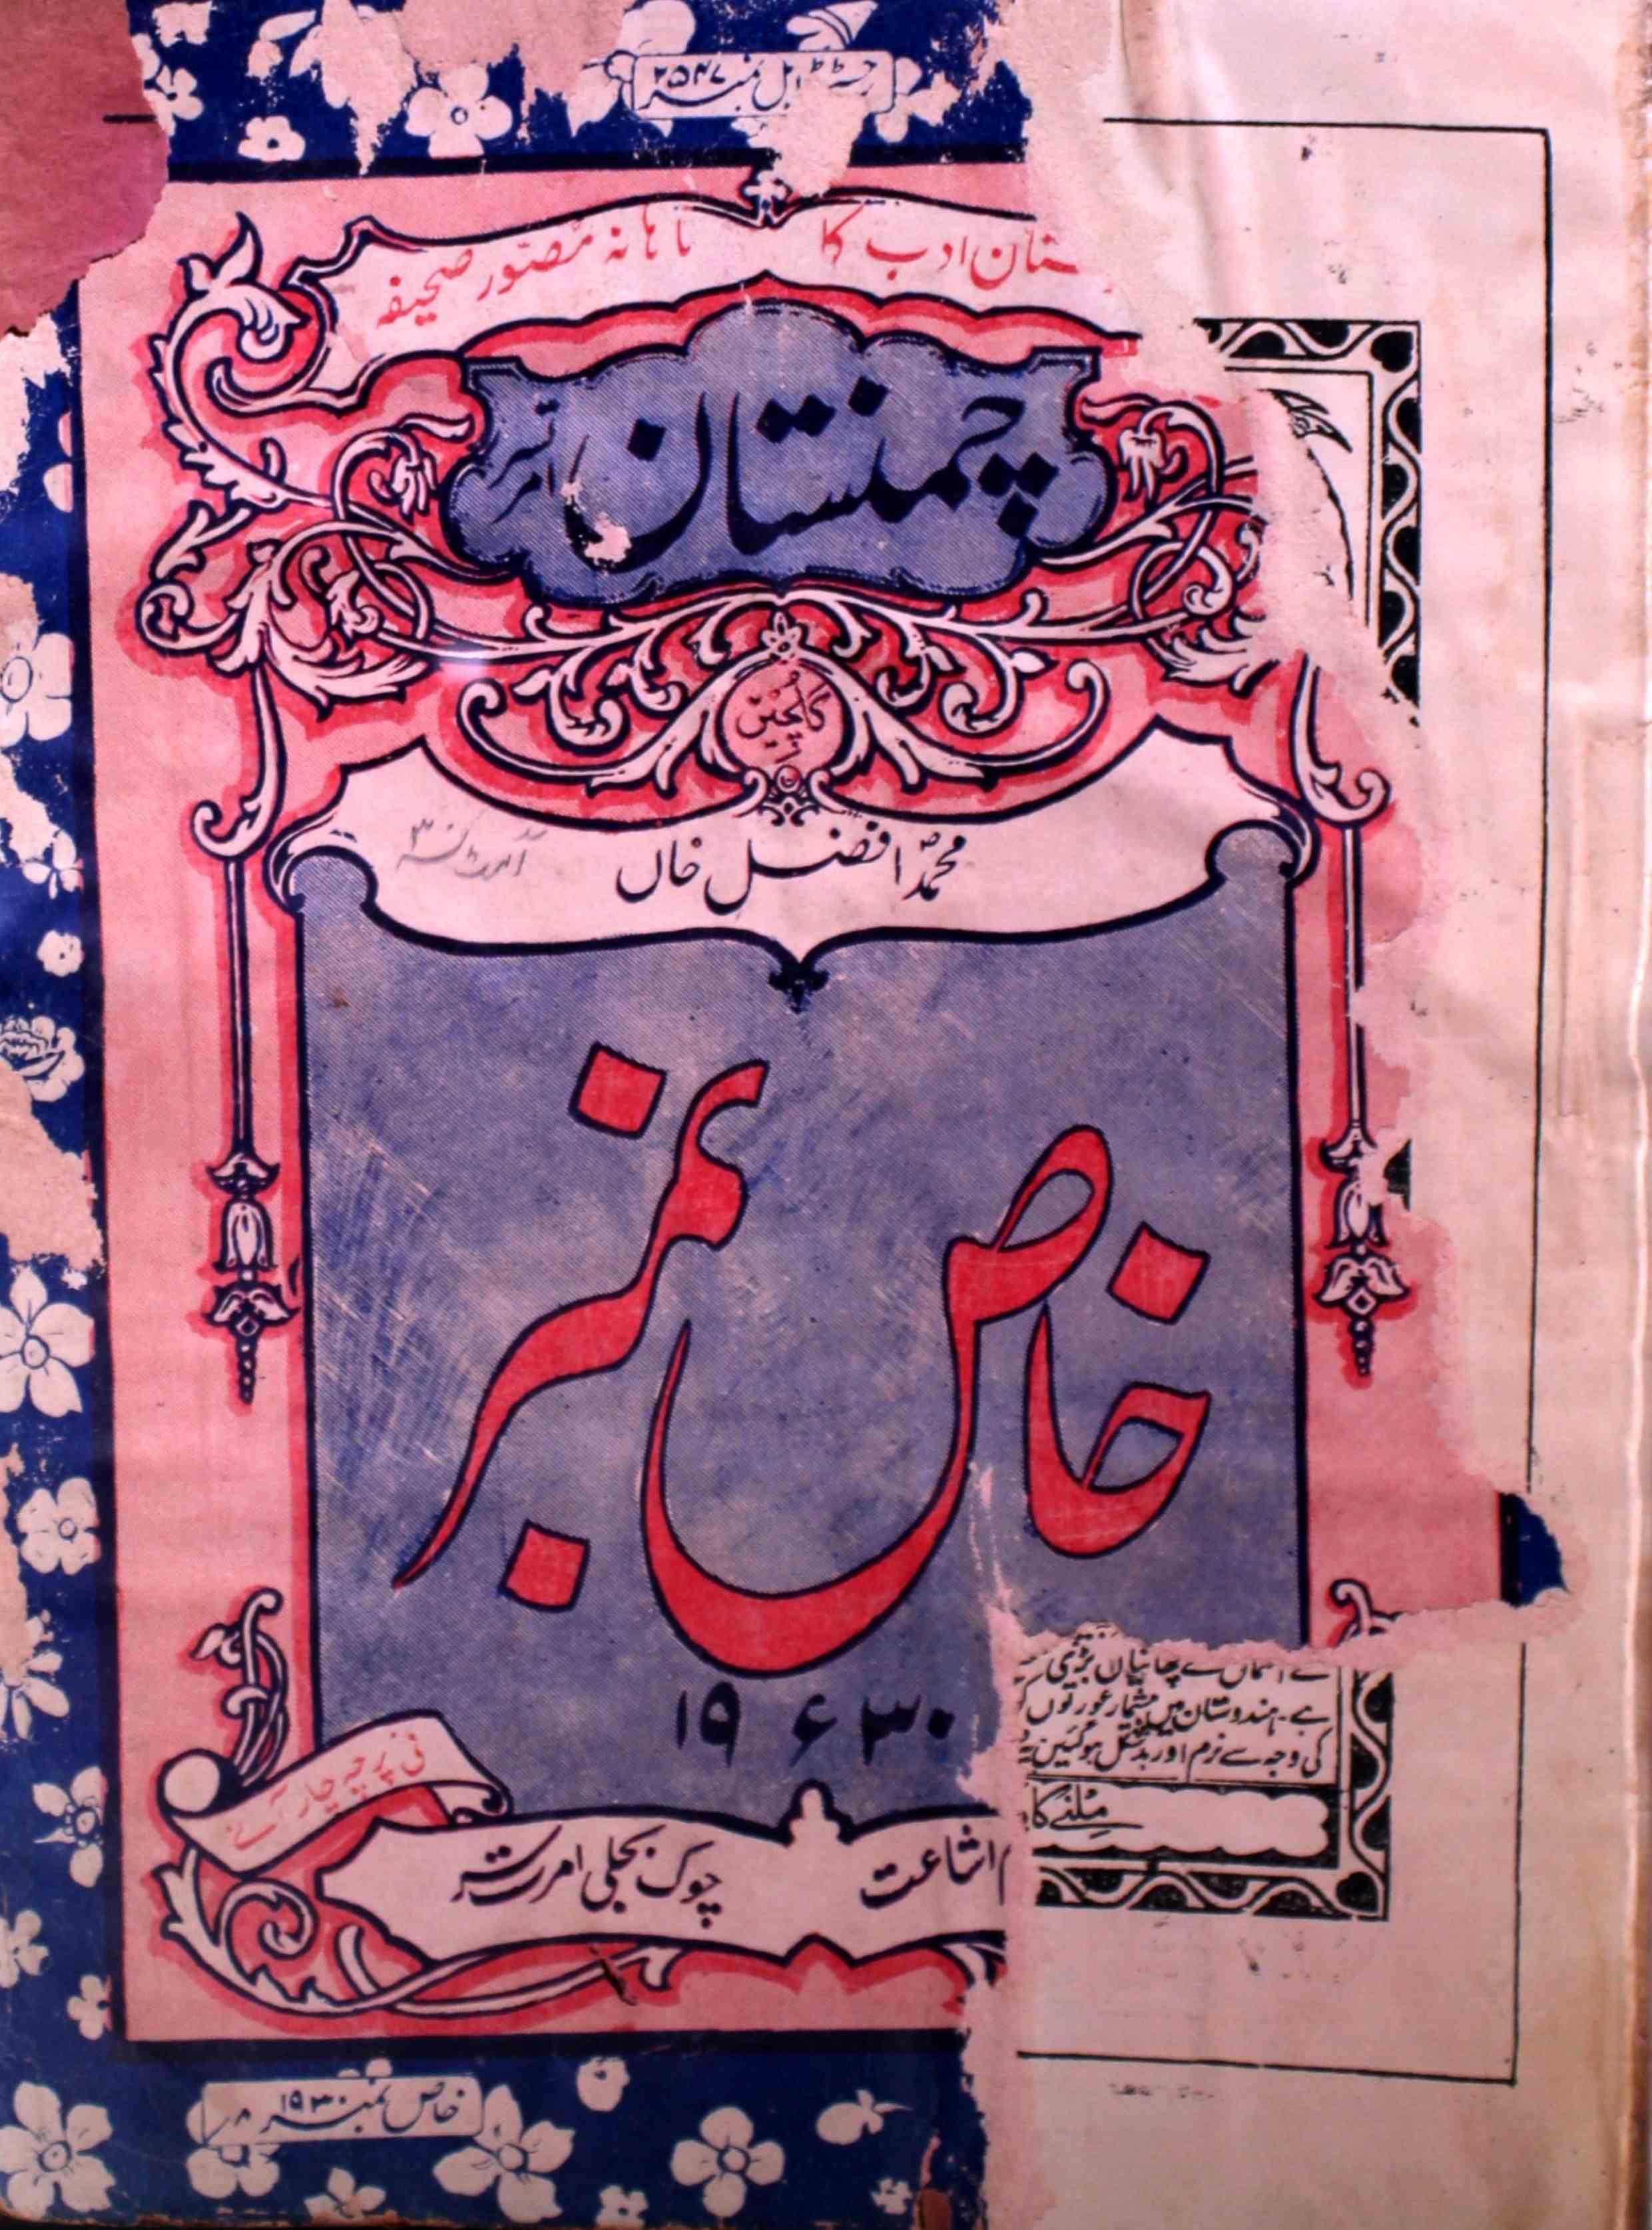 رجسٹرڈ ایل نمبر ۲۵۴۷
ستان ادب کا ماہانہ مصوّر صحیفہ
چمنستان امرتسر
گلچیں
محمدؐ افضل خاں
خاص نمبر
۱۹۳۰ء
فی پرچہ چار آنے
اشاعت چوک بجلی امرتسر
سے چھائیاں پڑی
ہے۔ ہندوستان میں بیشمار عورتوں
کی وجہ سے نرم اور بدشکل ہوگئیں
مِلنے کا
خاص نمبر ۱۹۳۰ ۸